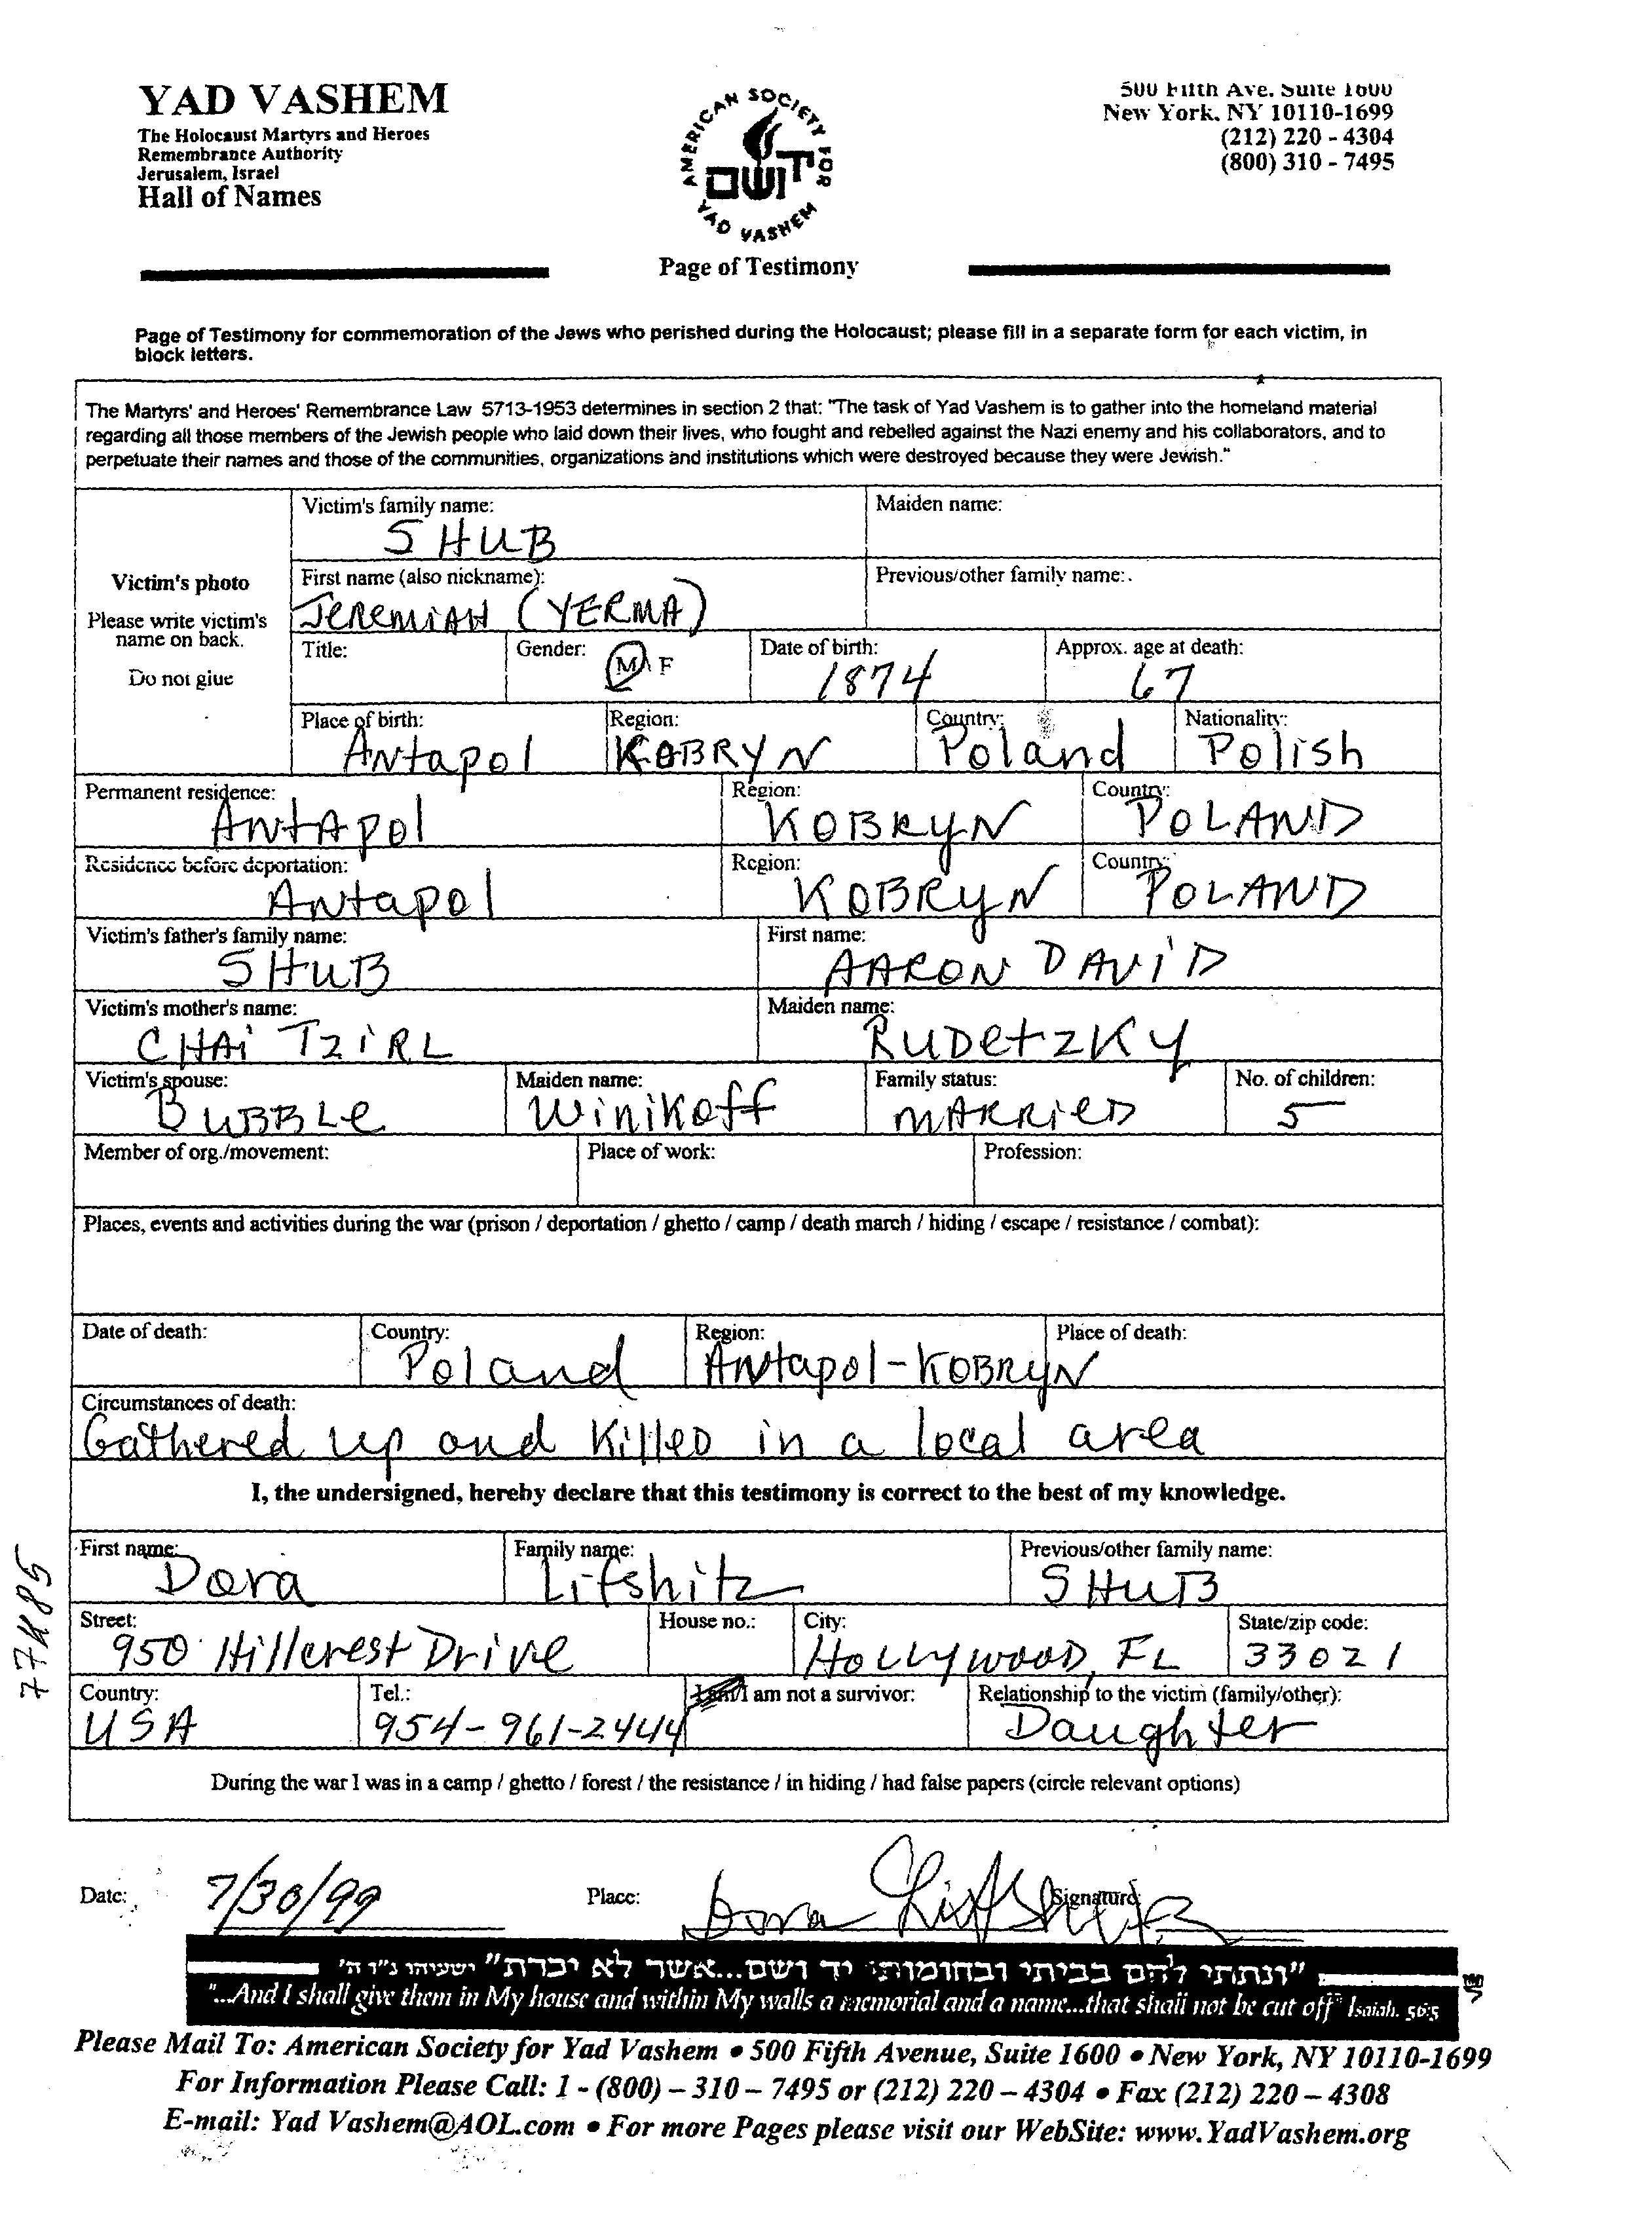 YAD VASHEM
The Holocaust Martyrs and Heroes
Remembrance Authority
Jerusalem, Israel
Hall of Names
AMERICAN SOCIETY FOR
יד ושם
YAD VASHEM
Page of Testimony
500 Fifth Ave. Suite 1600
New York, NY 10110-1699
(212) 220 - 4304
(800) 310 - 7495
Page of Testimony for commemoration of the Jews who perished during the Holocaust; please fill in a separate form for each victim, in
block letters.
The Martyrs' and Heroes' Remembrance Law 5713-1953 determines in section 2 that: "The task of Yad Vashem is to gather into the homeland material
regarding all those members of the Jewish people who laid down their lives, who fought and rebelled against the Nazi enemy and his collaborators, and to
perpetuate their names and those of the communities, organizations and institutions which were destroyed because they were Jewish."
Victim's photo
Please write victim's
name on back.
Do not glue
Victim's family name: Maiden name:
SHUB
First name (also nickname): Previous/other family name:
JEREMIAH (YERMA)
Title: Gender: M F Date of birth: Approx. age at death:
1874 67
Place of birth: Region: Country: Nationality:
Antapol KOBRYN Poland Polish
Permanent residence: Region: Country:
ANTAPOl KOBRYN POLAND
Residence before deportation: Region: Country:
Antapol KOBRYN POLAND
Victim's father's family name: First name:
SHUB AARON DAVID
Victim's mother's name: Maiden name:
CHAI TZIRL RUDetzKY
Victim's spouse: Maiden name: Family status: No. of children:
BUBBLe Winikoff MARRIED 5
Member of org./movement: Place of work: Profession:
Places, events and activities during the war (prison / deportation / ghetto / camp / death march / hiding / escape / resistance / combat):
Date of death: Country: Region: Place of death:
Poland Antapol-KOBRYN
Circumstances of death:
Gathered up and Killed in a local area
I, the undersigned, hereby declare that this testimony is correct to the best of my knowledge.
First name: Family name: Previous/other family name:
Dora Lifshitz SHUB
Street: House no.: City: State/zip code:
950 Hillcrest Drive HOLLYWOOD, FL 33021
Country: Tel.: I am not a survivor: Relationship to the victim (family/other):
USA 954-961-2444 Daughter
During the war I was in a camp / ghetto / forest / the resistance / in hiding / had false papers (circle relevant options)
77K85
Date: 7/30/99 Place: Signature: Dora Lifshitz
"ונתתי להם בביתי ובחומותי יד ושם...אשר לא יכרת" ישעיהו נ"ו ה'
"...And I shall give them in My house and within My walls a memorial and a name...that shall not be cut off" Isaiah. 56:5
Please Mail To: American Society for Yad Vashem • 500 Fifth Avenue, Suite 1600 • New York, NY 10110-1699
For Information Please Call: 1 - (800) – 310 – 7495 or (212) 220 – 4304 • Fax (212) 220 – 4308
E-mail: Yad Vashem@AOL.com • For more Pages please visit our WebSite: www.YadVashem.org